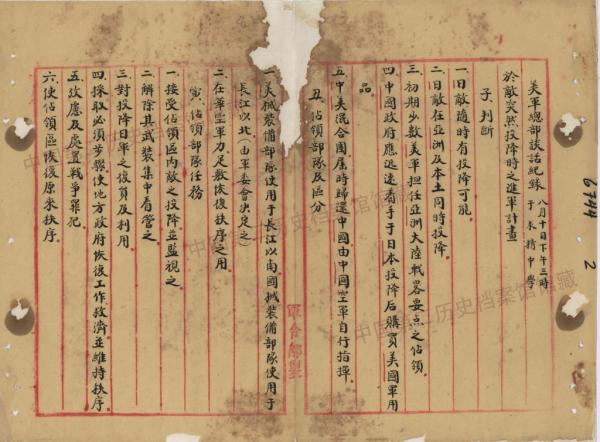 美軍總部談話紀錄 八月十日下午三時
於敵突然投降時之進軍計畫
子、判斷
一、日敵隨時有投降可能。
二、日敵在亞洲及本土同時投降。
三、初期少數美軍担任亞洲大陸戰畧要点之佔領。
四、中國政府應迅速着手于日本投降后購買美國軍用
品。
五、中美混合團屆時歸還中國由中國空軍自行指揮。
丑、佔領部隊及區分
一、美械裝備部隊使用于長江以南國械裝備部隊使用于
長江以北(由軍委會決定之)
二、在華空軍力足敷恢復秩序之用
寅、佔領部隊任務
一、接受佔領區內敵之投降並監視之
二、解除其武裝集中看管之
三、對投降日軍之復員及利用
四、採取必須步驟使地方政府恢復工作救濟並維持秩序。
五、攷慮及處置戰爭罪犯
六、使佔領區恢復原來秩序。
6744
2
中国第二历史档案馆馆藏
中国第二历史档案馆馆藏